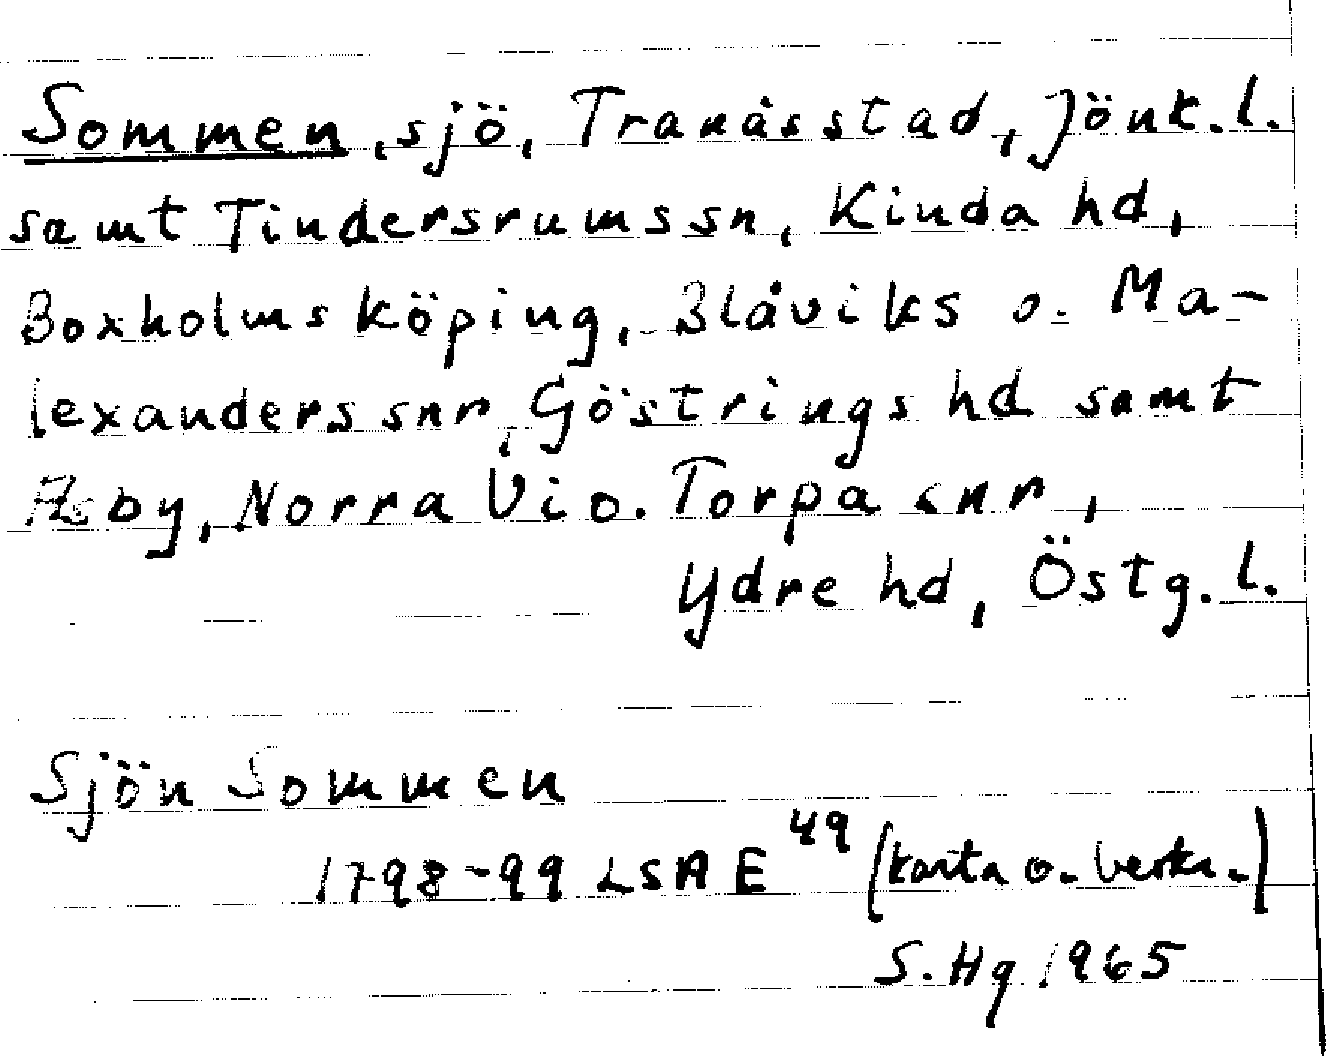 Sommen, sjö, Tranås stad, Jönk. l.
samt Tindersrums sn, Kinda hd,
Boxholms köping, Blåviks o. Ma-
lexanders snr, Göstrings hd samt
Asby, Norra Vi o. Torpa snr,
Ydre hd, Östg. l.
Sjön Sommen
1798-99 LSA E 49 (karta o. beskr.)
S. Hg 1965